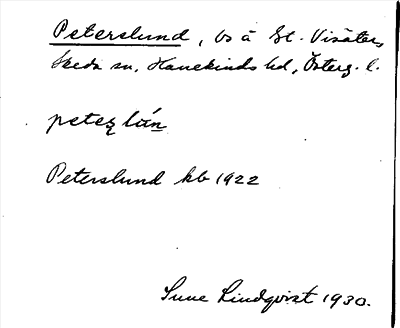 Peterslund, bs å St. Visätter,
Skeda sn, Hanekinds hd, Österg. l.
petez lún
Peterslund kb 1922
Sune Lindqvist 1930.